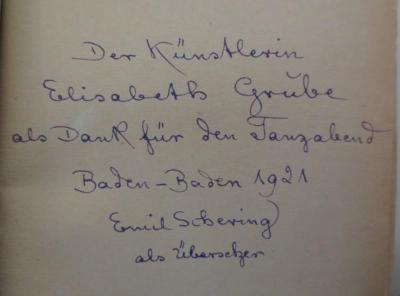 Der Künstlerin
Elisabeth Grube
als Dank für den Tanzabend
Baden-Baden 1921
Emil Schering
als Übersetzer